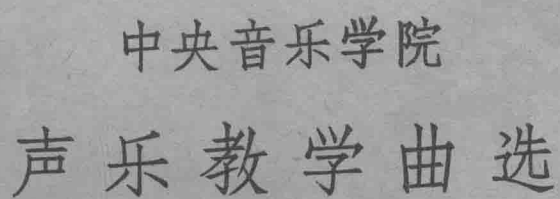 中央音乐学院
声乐教学曲选